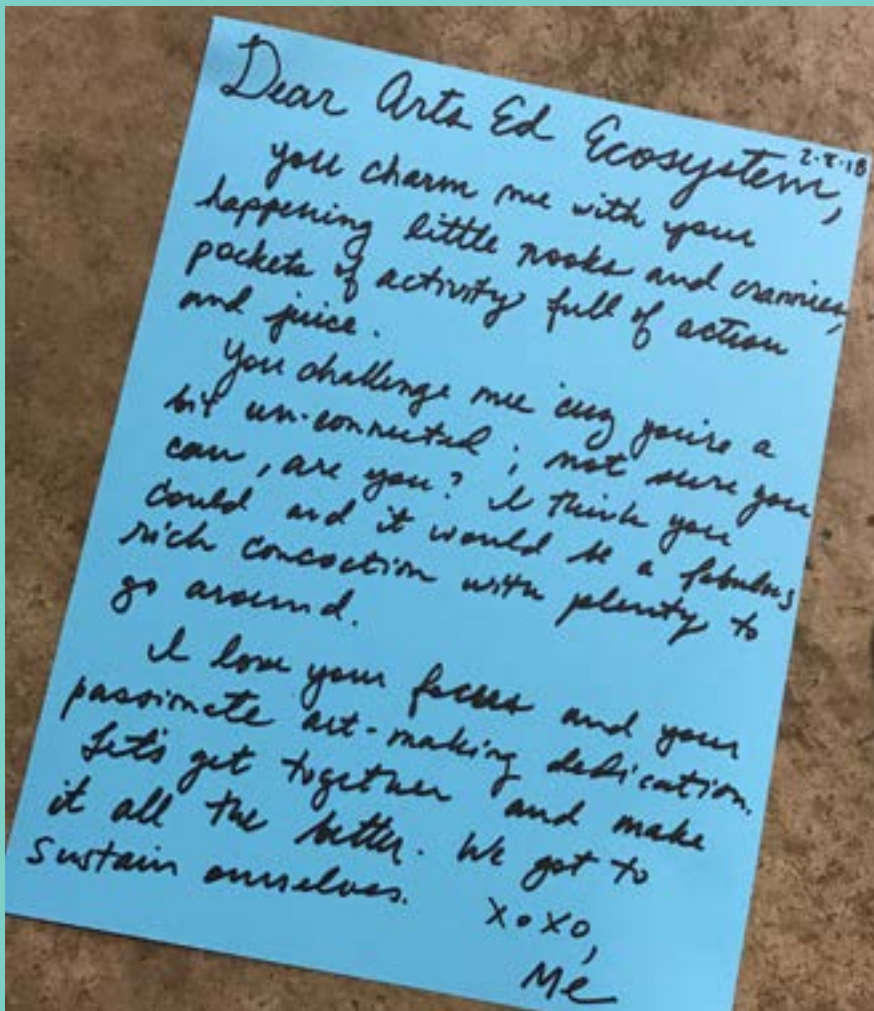 Dear Arts Ed Ecosystem,
2·8·18
you charm me with your
happening little nooks and crannies,
pockets of activity full of action
and juice.
You challenge me 'cuz you're a
bit un-connected; not sure you
can, are you? I think you
could and it would be a fabulous
rich concoction with plenty to
go around.
I love your focus and your
passionate art-making dedication.
Let's get together and make
it all the better. We got to
sustain ourselves.
xoxo,
Me